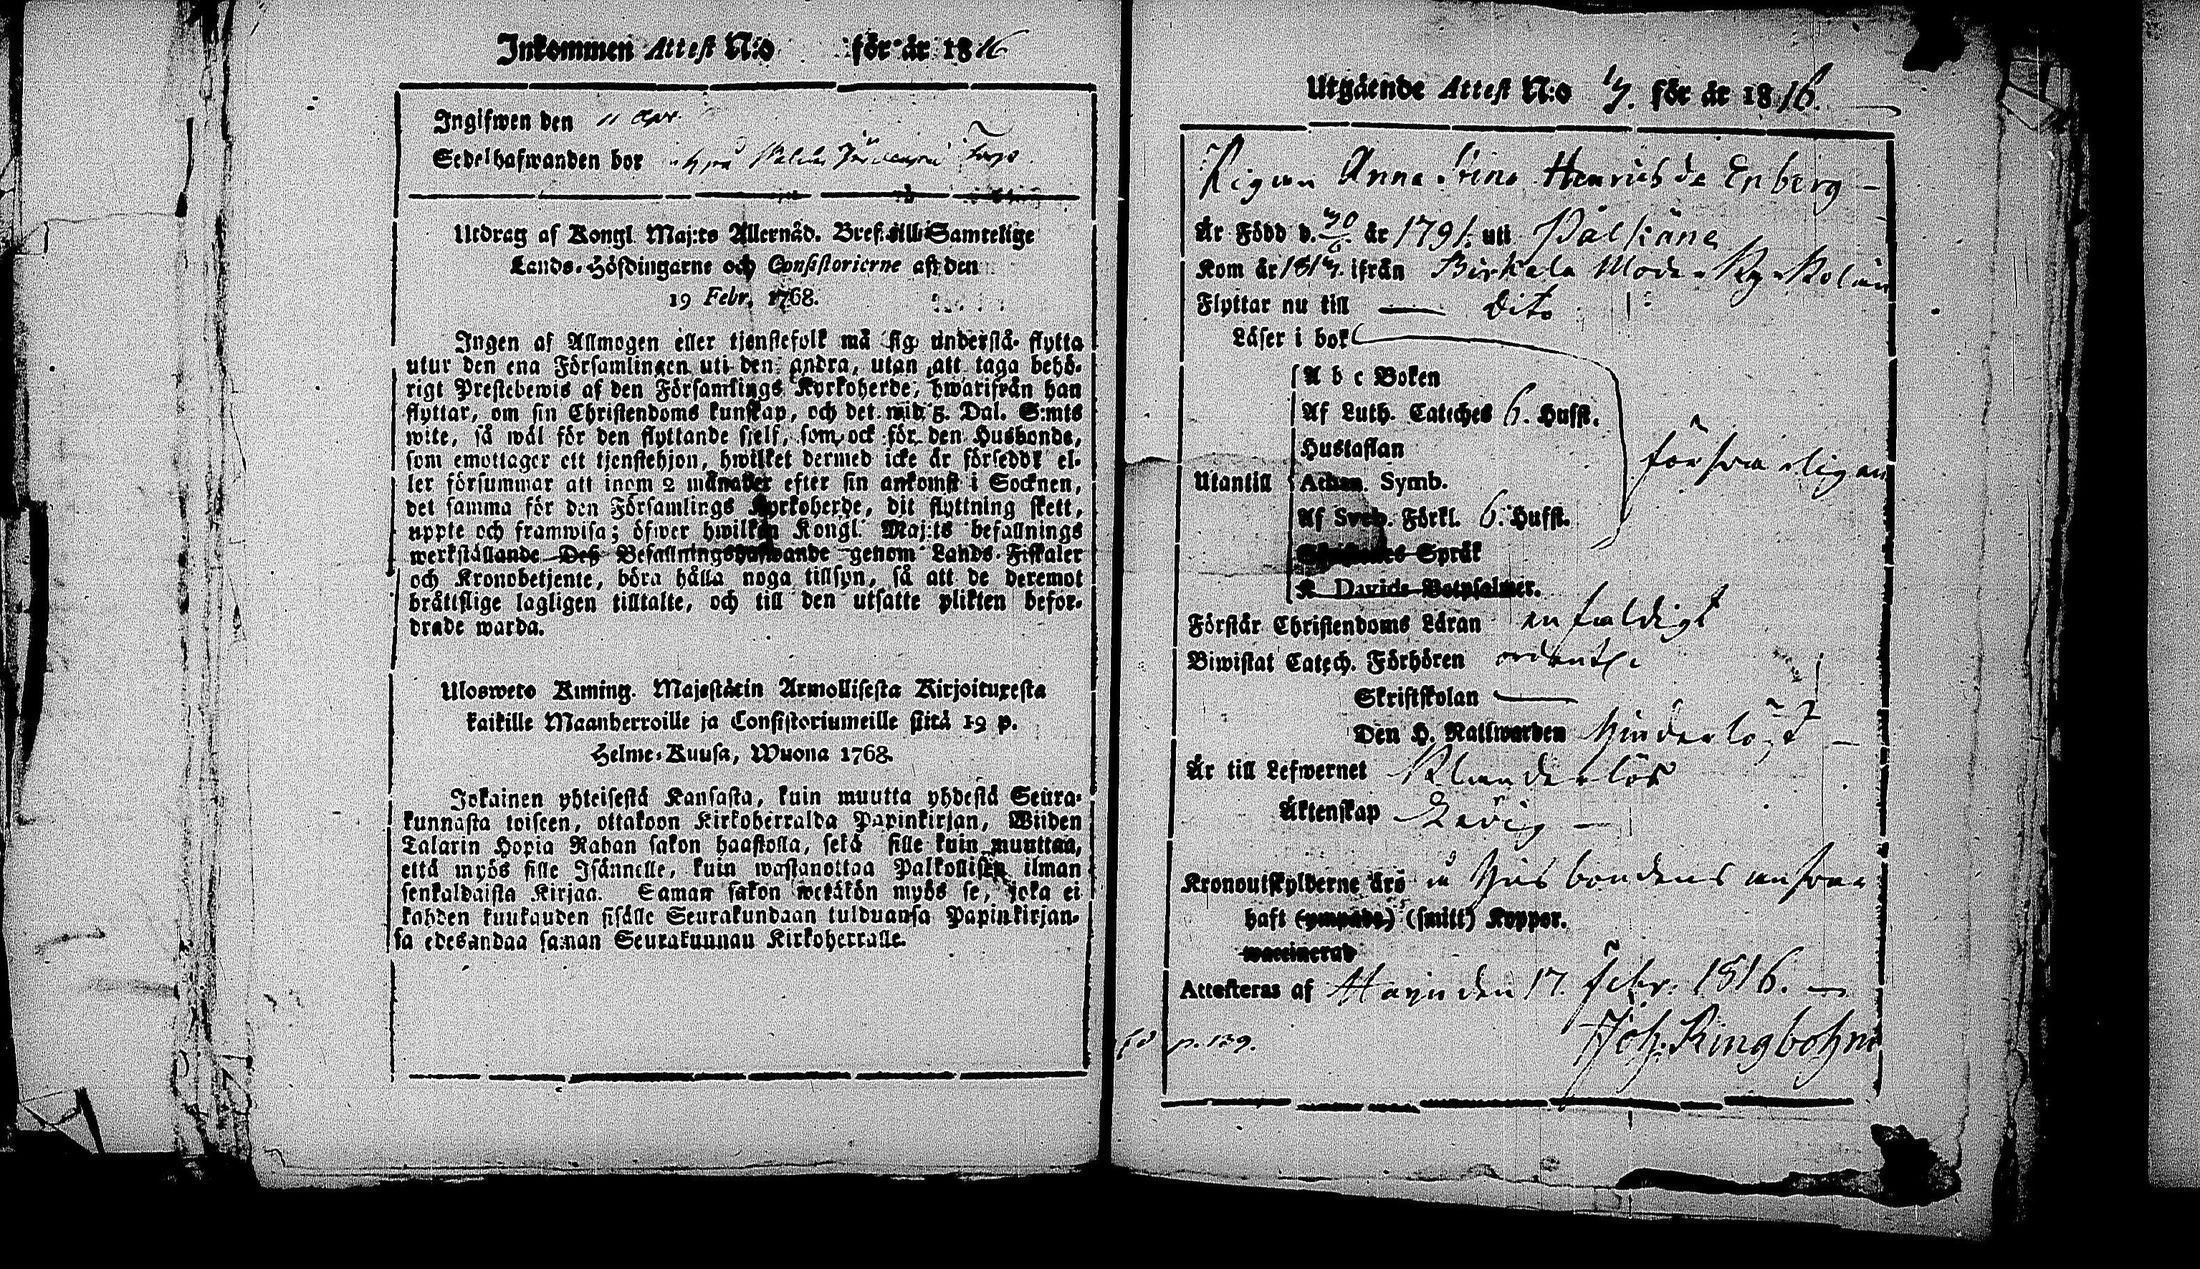 Inkommen Attest N:o för år 1816
Ingifwen den 11 Apr.
Sedelhafwanden bor
Utdrag af Kongl. Maj:ts Allernåd. Bref till Samtelige
Lands-Höfdingarne och Consistorierne af den
19 Febr. 1768.
Ingen af Allmogen eller tjenstefolk må sig understå flytta
utur den ena Församlingen uti den andra, utan att taga behö-
rigt Prestebewis af den Församlings Kyrkoherde, hwarifrån han
flyttar, om sin Christendoms kunskap, och det wid 5. Dal. S:mts
wite, så wäl för den flyttande sjelf, som ock för den Husbonde,
som emottager ett tjenstehjon, hwilket dermed icke är försedt el-
ler försummar att inom 2 månader efter sin ankomst i Socknen,
det samma för den Församlings Kyrkoherde, dit flyttning skett,
uppte och framwisa; öfwer hwilken Kongl. Maj:ts befallnings
werkställande Deß Befallningshafwande genom Lands-Fiskaler
och Kronobetjente, böra hålla noga tillsyn, så att de deremot
bråttslige lagligen tilltalte, och till den utsatte plikten befor-
drade warda.
Ulosweto Kuning. Majestätin Armollisesta Kirjoituxesta
kaikille Maanherroille ja Consistoriumeille siitä 19 p.
Helme-Kuusa, Wuona 1768.
Jokainen yhteisestä Kansasta, kuin muutta yhdestä Seura-
kunnasta toiseen, ottakoon Kirkoherralda Papinkirjan, Wiiden
Talarin Hopia Rahan sakon haastolla, sekä sille kuin muuttaa,
että myös sille Isännelle, kuin wastanottaa Palkollisen ilman
senkaldaista Kirjaa. Saman sakon wetäkön myös se, joka ei
kahden kuukauden sisälle Seurakundaan tulduansa Papinkirjan-
sa edesandaa saman Seurakunnan Kirkoherralle.
Utgående Attest N:o 17. för år 1816.
Pigan Anna Stina Henricsd:r Enberg
Är Född d. 20/6 år 1791. uti Pälkäne
Kom år 181 ifrån Birkala Moder Ky
Flyttar nu till — Dito
Läser i bok
A b c Boken
Af Luth. Cateches 6. Hufst.
Hustaflan
försvarligen
Utantill Athan. Symb.
Af Sveb. Förkl. 6. Hufst.
Skriftenes Språk
K Davids Botpsalmer.
Förstår Christendoms Läran enfaldigt
Biwistat Catech. Förhören ordentl.
Skriftskolan —
Den H. Nattwarden hinderlöst
Är till Lefwernet Klanderlös
Äktenskap Ledig
Kronoutskylderne äro i Husbondens ansvar
haft (ympade) (smitt) Koppor.
waccinerad
Attesteras af Mayn den 17. Febr. 1816.
p. 139.
Joh. Ringbohm